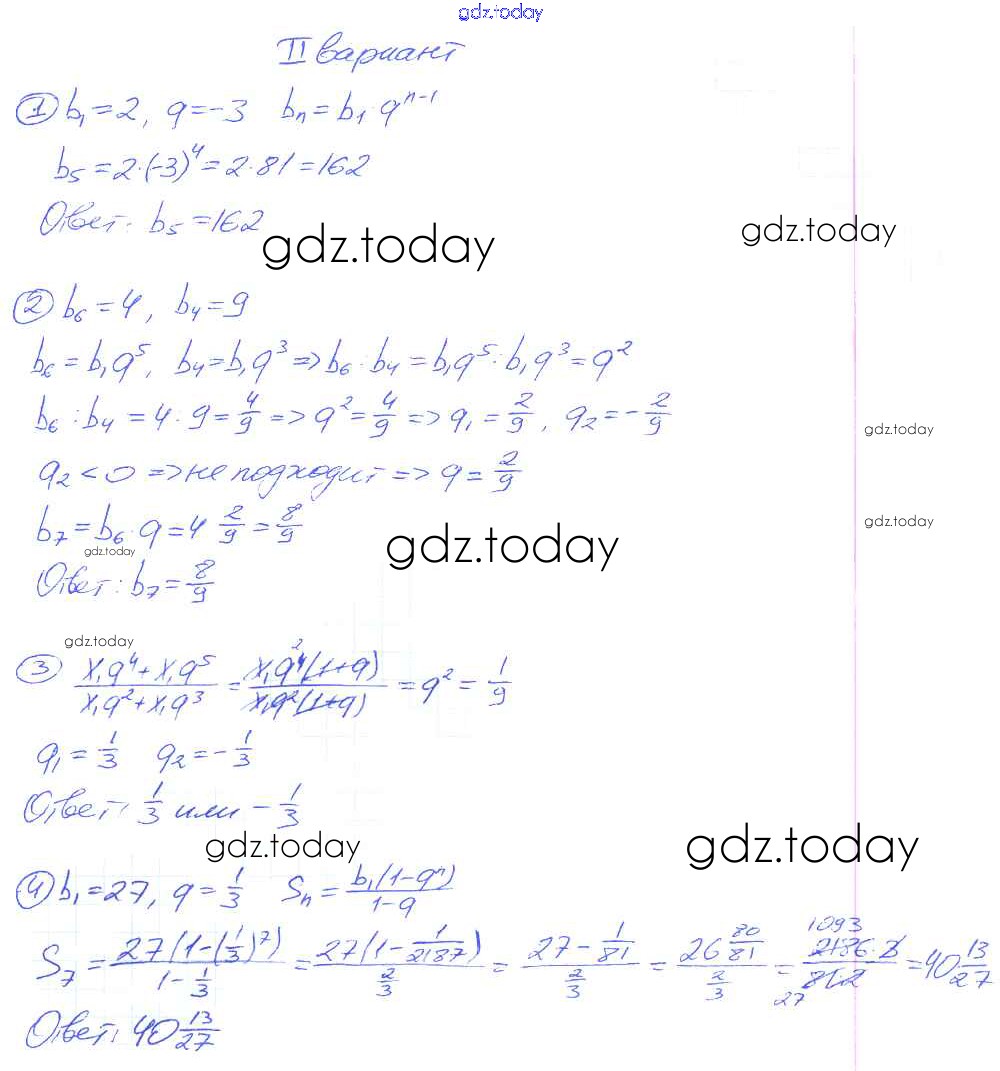 gdz.today
II вариант
1 b₁ = 2, q = -3 bₙ = b₁·qⁿ⁻¹
b₅ = 2·(-3)⁴ = 2·81 = 162
Ответ: b₅ = 162
gdz.today
gdz.today
2 b₆ = 4, b₄ = 9
b₆ = b₁q⁵, b₄ = b₁q³ => b₆ : b₄ = b₁q⁵ : b₁q³ = q²
b₆ : b₄ = 4 : 9 = 4/9 => q² = 4/9 => q₁ = 2/9, q₂ = -2/9
gdz.today
q₂ < 0 => не подходит => q = 2/9
b₇ = b₆·q = 4 2/9 = 8/9
gdz.today
gdz.today
gdz.today
Ответ: b₇ = 8/9
gdz.today
3 (x₁q⁴ + x₁q⁵)/(x₁q² + x₁q³) = (x₁q⁴²(1+q))/(x₁q²(1+q)) = q² = 1/9
q₁ = 1/3 q₂ = -1/3
Ответ: 1/3 или -1/3
gdz.today
gdz.today
4 b₁ = 27, q = 1/3 Sₙ = b₁(1-qⁿ)/(1-q)
S₇ = 27(1-(1/3)⁷)/(1-1/3) = 27(1-1/2187)/(2/3) = (27-1/81)/(2/3) = (26 80/81)/(2/3) = 1093 2186·3/(81·2) 27 = 40 13/27
Ответ: 40 13/27